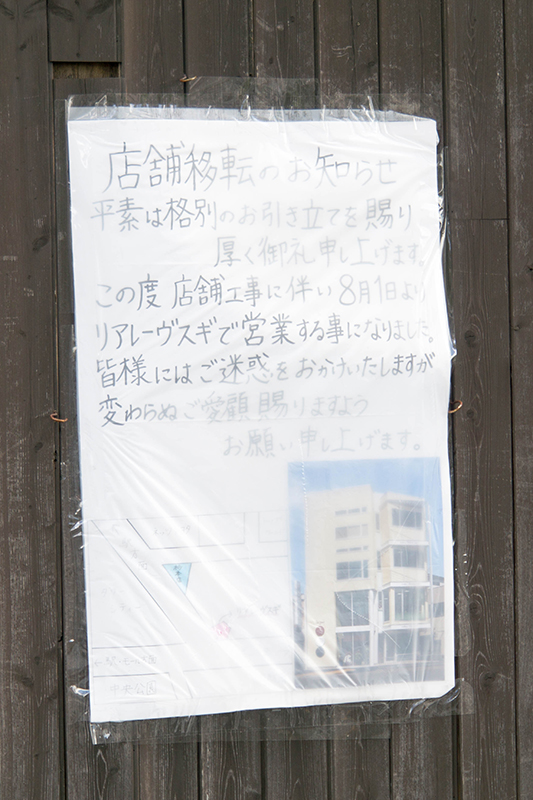 店舗移転のお知らせ
平素は格別のお引き立てを賜り
厚く御礼申し上げます。
この度 店舗工事に伴い 8月1日より
リアレーヴスギで営業する事になりました。
皆様にはご迷惑をおかけいたしますが
変わらぬご愛顧賜りますよう
お願い申し上げます。
中央公園